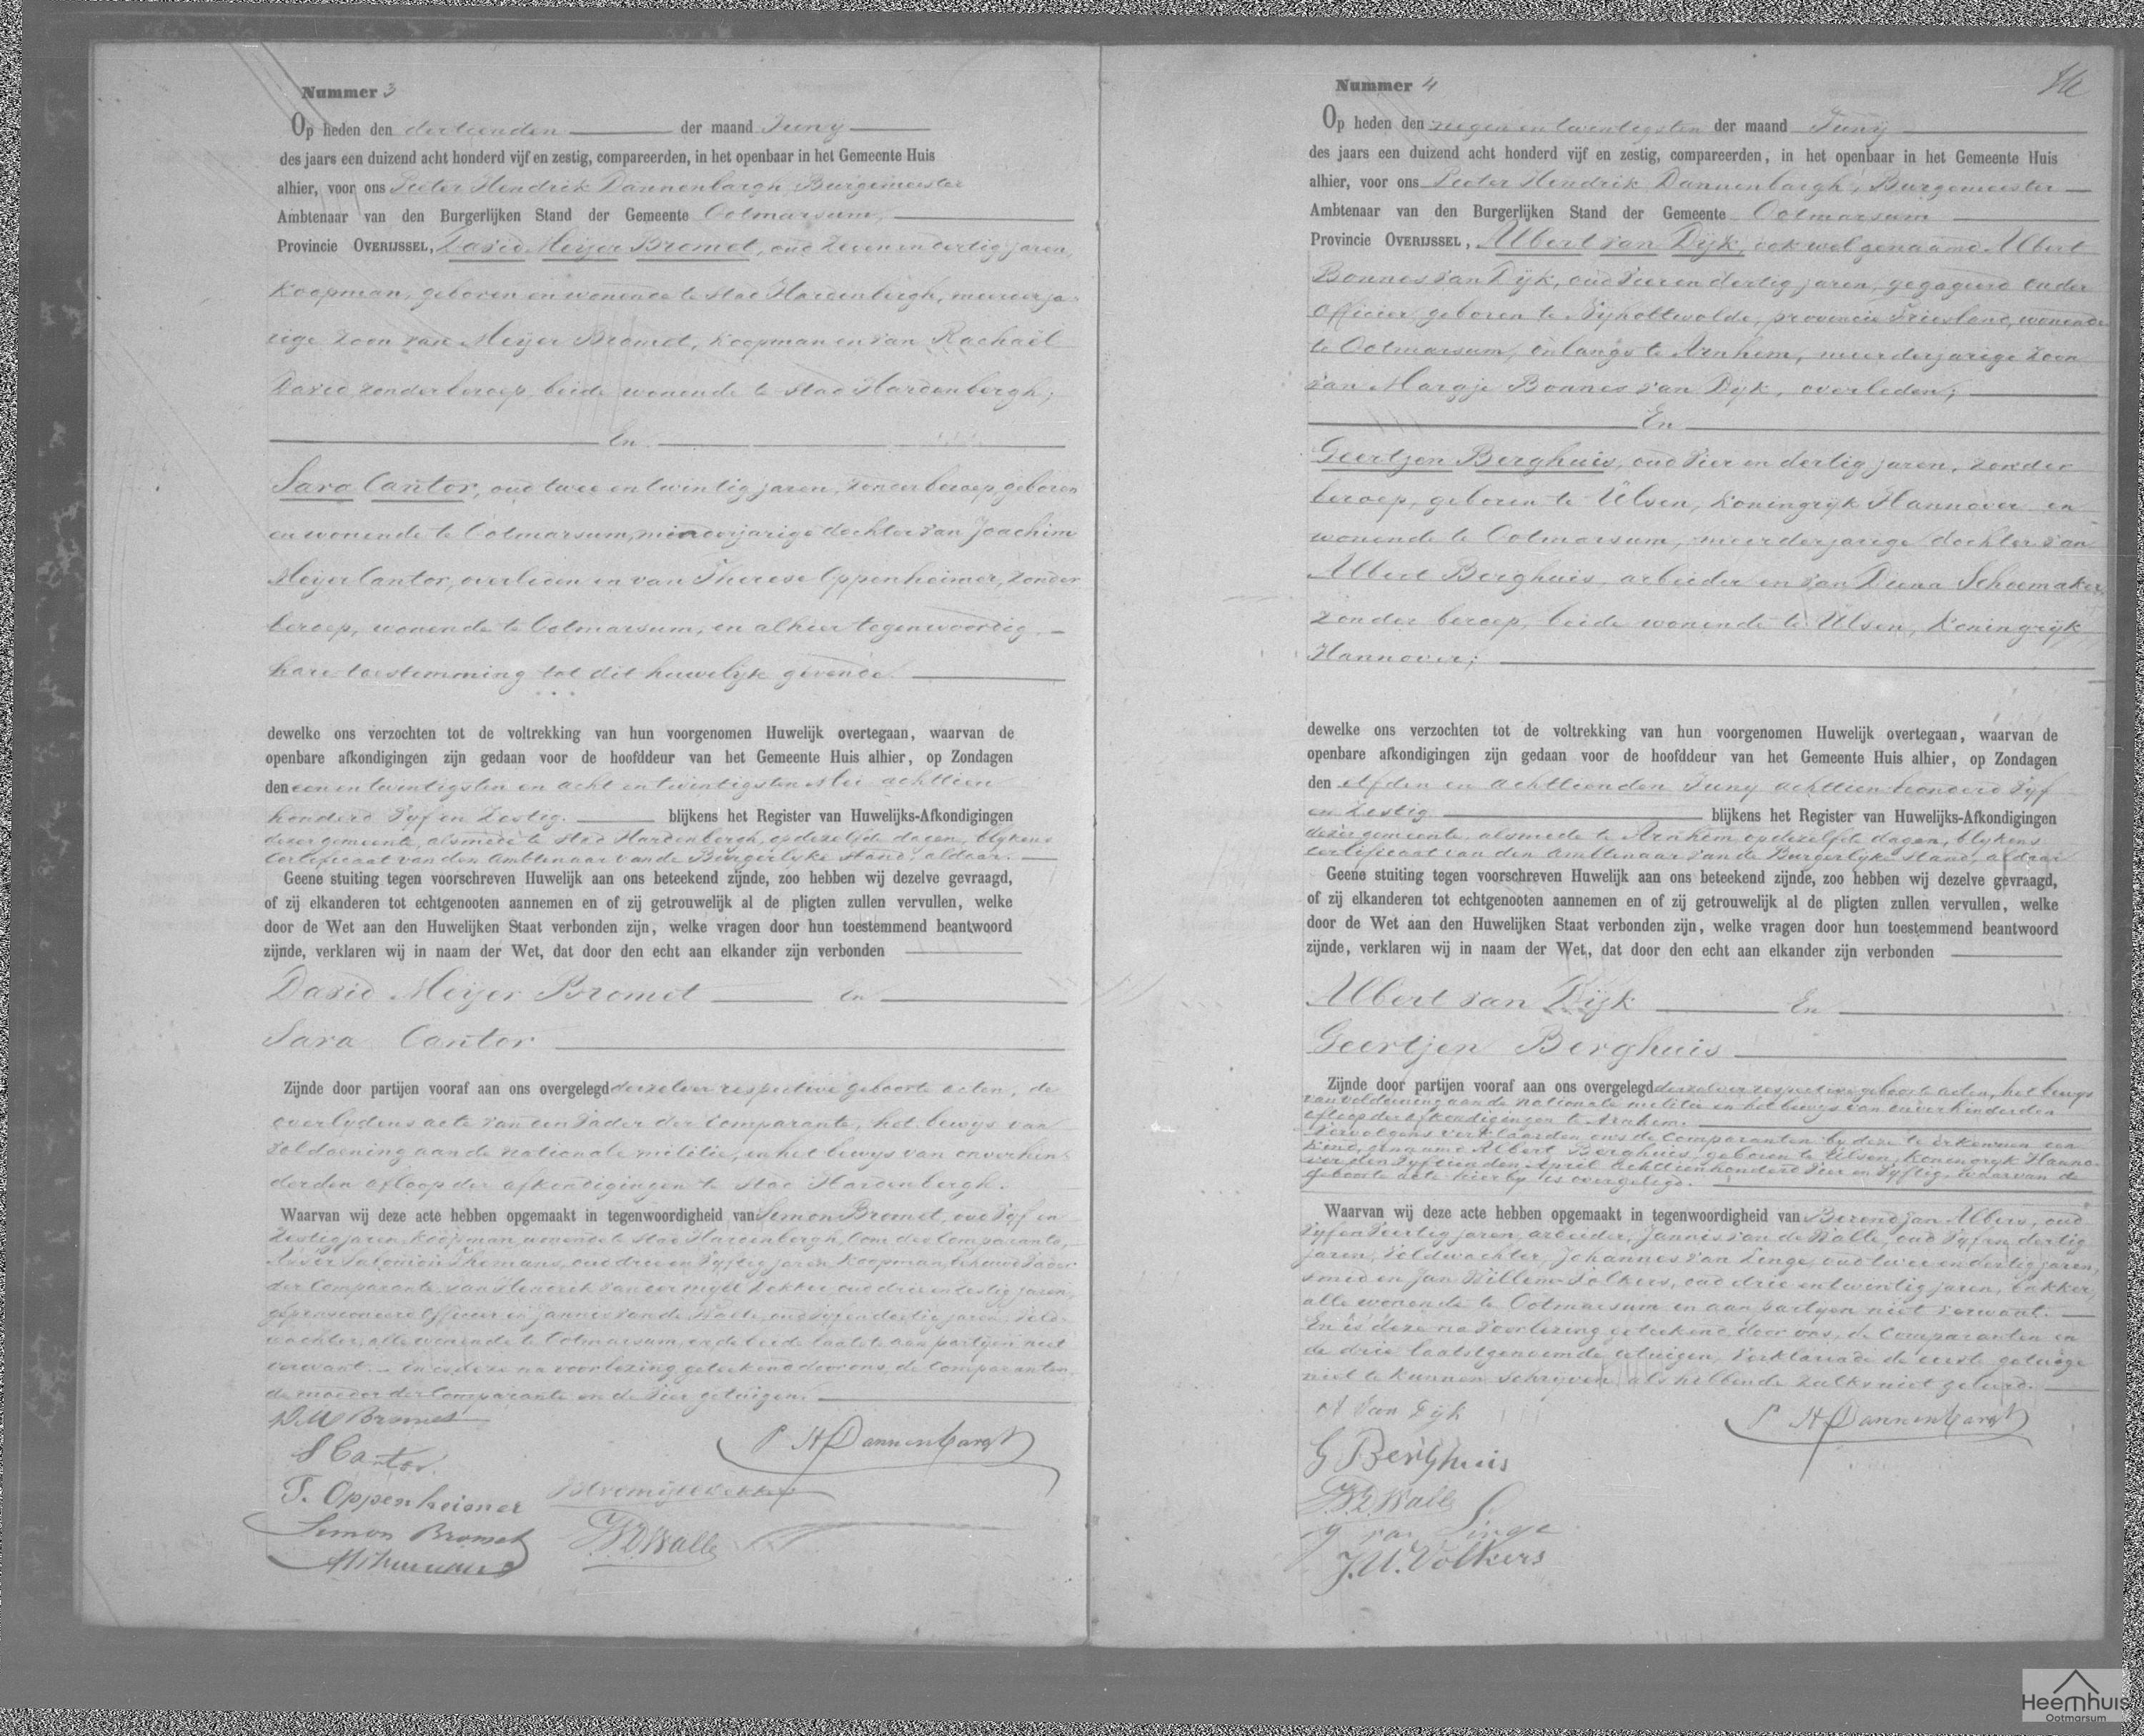 Nummer 3
Op heden den dertienden der maand Juny
des jaars een duizend acht honderd vijf en zestig, compareerden, in het openbaar in het Gemeente Huis
alhier, voor ons Pieter Hendrik Dannenbargh, Burgemeester
Ambtenaar van den Burgerlijken Stand der Gemeente Ootmarsum,
Provincie OVERIJSSEL, David Meijer Bromet, oud zeven en dertig jaren,
koopman, geboren en wonende te stad Hardenbergh, meerderja-
rige zoon van Meijer Bromet, koopman en van Rachaël
David, zonder beroep, beide wonende te stad Hardenbergh;
En
Sara Cantor, oud twee en twintig jaren, zonder beroep, geboren
en wonende te Ootmarsum, minderjarige dochter van Joachim
Meijer Cantor, overleden en van Therese Oppenheimer, zonder
beroep, wonende te Ootmarsum, en alhier tegenwoordig
hare toestemming tot dit huwelijk gevende.
dewelke ons verzochten tot de voltrekking van hun voorgenomen Huwelijk overtegaan, waarvan de
openbare afkondigingen zijn gedaan voor de hoofddeur van het Gemeente Huis alhier, op Zondagen
den een en twintigsten en acht en twintigsten Mei achttien
honderd vijf en zestig. blijkens het Register van Huwelijks-Afkondigingen
dezer gemeente, alsmede te stad Hardenbergh, op dezelfde dagen, blykens
certificaat van den Ambtenaar van de Burgerlyke stand, aldaar.
Geene stuiting tegen voorschreven Huwelijk aan ons beteekend zijnde, zoo hebben wij dezelve gevraagd,
of zij elkanderen tot echtgenooten aannemen en of zij getrouwelijk al de pligten zullen vervullen, welke
door de Wet aan den Huwelijken Staat verbonden zijn, welke vragen door hun toestemmend beantwoord
zijnde, verklaren wij in naam der Wet, dat door den echt aan elkander zijn verbonden
David Meijer Bromet en
Sara Cantor
Zijnde door partijen vooraf aan ons overgelegd derzelver respective geboorte acten, de
overlydens acte van den vader der Comparante, het bewys van
voldoening aan de nationale militie, en het bewys van onverhin-
derden afloop der afkondigingen te stad Hardenbergh.
Waarvan wij deze acte hebben opgemaakt in tegenwoordigheid van Simon Bromet, oud vyf en
zestig jaren, koopman, wonende te stad Hardenbergh, oom des Comparants,
Salomon Themans, oud drie en vyftig jaren, koopman, behuwd vader
der Comparante, van Hendrik van Dekker, oud drie en zestig jaren,
gepensioneerd Officier en Jannis van de Walle, oud vyf en dertig jaren, veld-
wachter, alle wonende te Ootmarsum, en de beide laatste aan partyen niet
verwant. En is deze na voorlezing geteekend door ons, de Comparanten,
de moeder der Comparante en de vier getuigen.
DM Bromet
S Cantor
T. Oppenheimer
Simon Bromet
P H Dannenbargh
VD Walle
Nummer 4
Op heden den negen en twintigsten der maand Juny
des jaars een duizend acht honderd vijf en zestig, compareerden, in het openbaar in het Gemeente Huis
alhier, voor ons Pieter Hendrik Dannenbargh, Burgemeester
Ambtenaar van den Burgerlijken Stand der Gemeente Ootmarsum
Provincie OVERIJSSEL, Albert van Dijk, ook wel genaamd Albert
Bonnes van Dijk, oud vier en dertig jaren, gegageerd onder
Officier, geboren te Nijholtwolde, provincie Friesland, wonende
te Ootmarsum, onlangs te Arnhem, meerderjarige zoon
van Margje Bonnes van Dijk, overleden;
En
Geertjen Berghuis, oud vier en dertig jaren, zonder
beroep, geboren te Ulsen, Koningrijk Hannover en
wonende te Ootmarsum, meerderjarige dochter van
Albert Berghuis, arbeider en van Diena Schoemaker,
zonder beroep, beide wonende te Ulsen, Koningrijk
Hannover;
dewelke ons verzochten tot de voltrekking van hun voorgenomen Huwelijk overtegaan, waarvan de
openbare afkondigingen zijn gedaan voor de hoofddeur van het Gemeente Huis alhier, op Zondagen
den elfden en achttienden Juny achttien honderd vyf
en zestig blijkens het Register van Huwelijks-Afkondigingen
dezer gemeente, alsmede te Arnhem op dezelfde dagen, blykens
certificaat van den Ambtenaar van de Burgerlyke stand, aldaar
Geene stuiting tegen voorschreven Huwelijk aan ons beteekend zijnde, zoo hebben wij dezelve gevraagd,
of zij elkanderen tot echtgenooten aannemen en of zij getrouwelijk al de pligten zullen vervullen, welke
door de Wet aan den Huwelijken Staat verbonden zijn, welke vragen door hun toestemmend beantwoord
zijnde, verklaren wij in naam der Wet, dat door den echt aan elkander zijn verbonden
Albert van Dijk En
Geertjen Berghuis
Zijnde door partijen vooraf aan ons overgelegd derzelver respective geboorte acten, het bewys
van voldoening aan de nationale militie en het bewys van onverhinderden
afloop der afkondigingen te Arnhem.
Vervolgens verklaarden ons de Comparanten by deze te erkennen een
kind, genaamd Albert Berghuis, geboren te Ulsen, Koningryk Hanno-
ver den vyftienden April achttienhonderd vier en vyftig, waarvan de
geboorte acte hierby is overgelegd.
Waarvan wij deze acte hebben opgemaakt in tegenwoordigheid van Berendjan Albers, oud
vyf en veertig jaren, arbeider, Jannis van de Walle, oud vyf en dertig
jaren, veldwachter, Johannes van Linge, oud twee en dertig jaren,
smid en Jan Willem Volkers, oud drie en twintig jaren, bakker,
alle wonende te Ootmarsum en aan partyen niet verwant.
En is deze na voorlezing geteekend door ons, de Comparanten en
de drie laatstgenoemde getuigen, verklarende de eerste getuige
niet te kunnen schryven, als hebbende zulks niet geleerd.
A van Dyk
P H Dannenbargh
G Berghuis
VD Walle
J van Linge
J.W. Volkers
Heemhuis
Ootmarsum